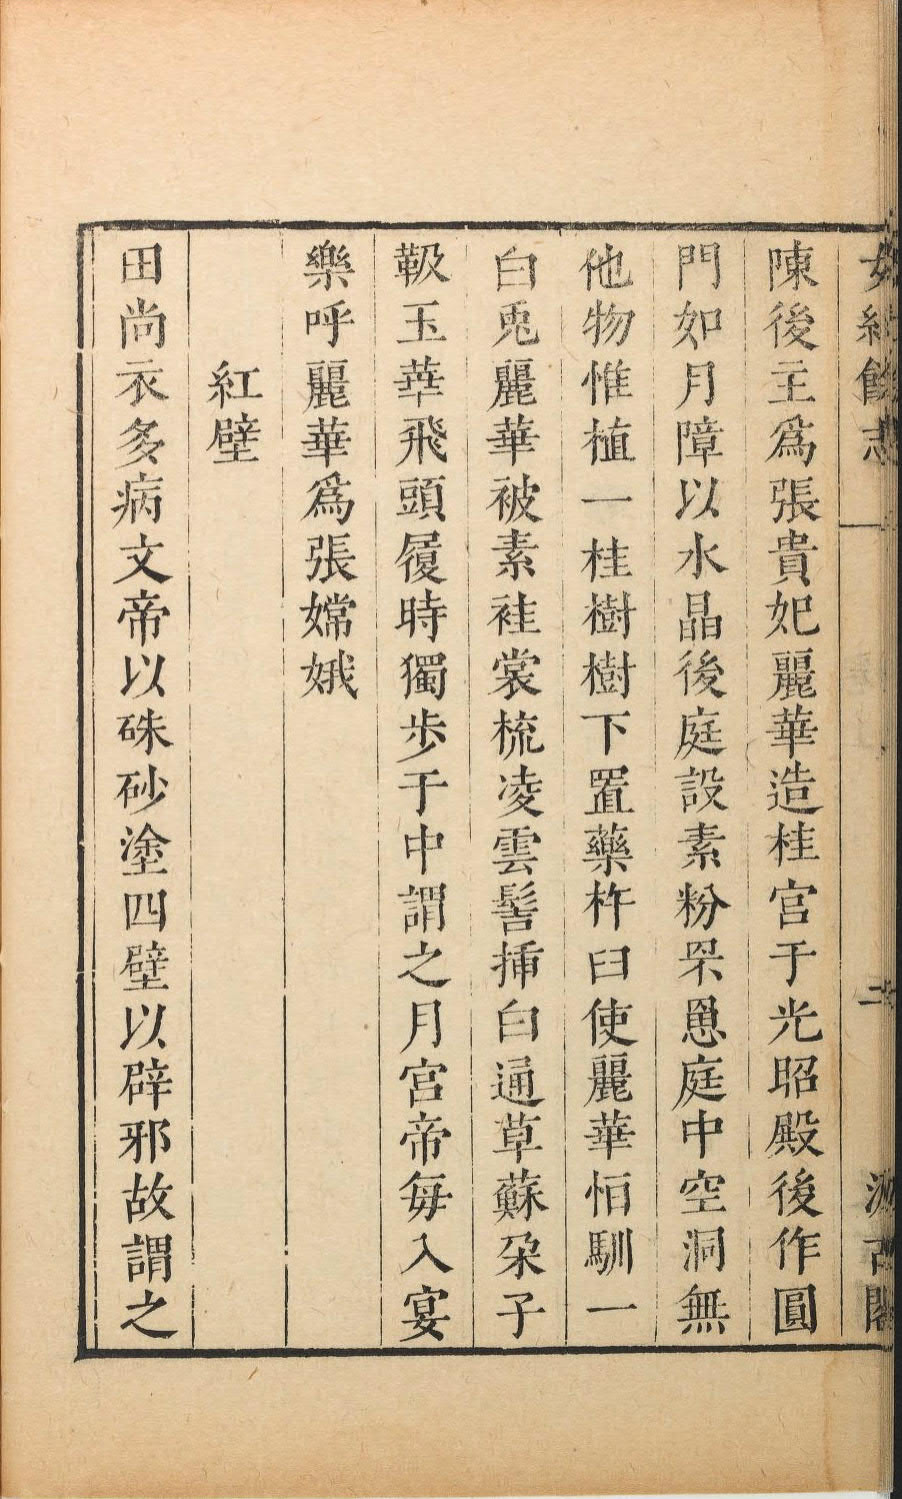 女紅餘志
二
汲古閣
陳後主爲張貴妃麗華造桂宮于光昭殿後作圓
門如月障以水晶後庭設素粉罘罳庭中空洞無
他物惟植一桂樹樹下置藥杵臼使麗華恒馴一
白兎麗華被素袿裳梳凌雲髻揷白通草蘇朶子
靸玉華飛頭履時獨步于中謂之月宮帝每入宴
樂呼麗華爲張嫦娥
紅壁
田尚衣多病文帝以硃砂塗四壁以辟邪故謂之